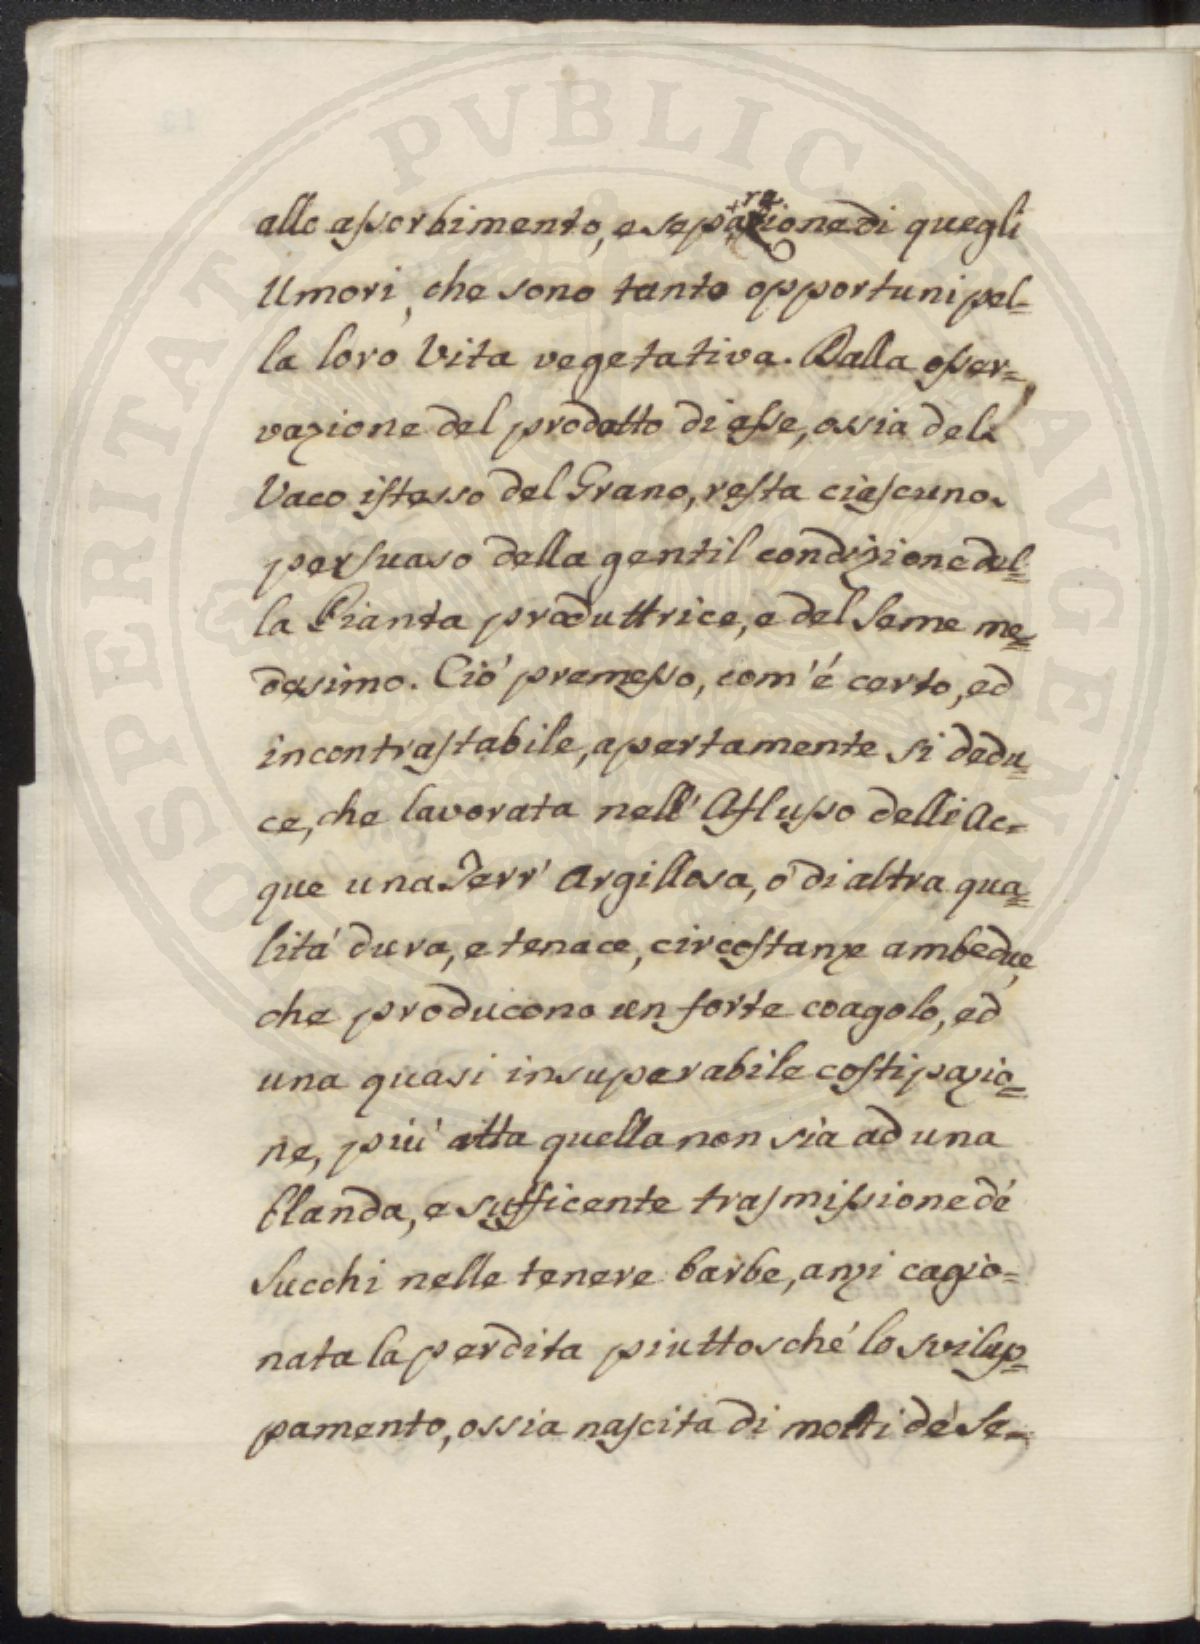 PVBLICAE PROSPERITATI AVGENDAE
allo assorbimento, e separazione di quegli
Umori, che sono tanto opportuni pel-
la loro Vita vegetativa. Dalla osser=
vazione del prodotto di esse, ossia del
Vaco istesso del Grano, resta ciascuno
persuaso della gentil condizione del=
la Pianta produttrice, e del Seme me=
desimo. Ció premesso, com'é certo, ed
incontrastabile, apertamente si dedu=
ce, che lavorata nell'Aflusso delli Ac=
que una Terr' Argillosa, ó di altra qua=
litá dura, e tenace, circostanze ambedue,
che producono un forte coagolo, ed
una quasi insuperabile costipazio=
ne, piú atta quella non sia ad una
blanda, e sufficente trasmissione dé
Succhi nelle tenere barbe, anzi cagio=
nata la perdita piuttosché lo svilup=
pamento, ossia nascita di molti dé Se=